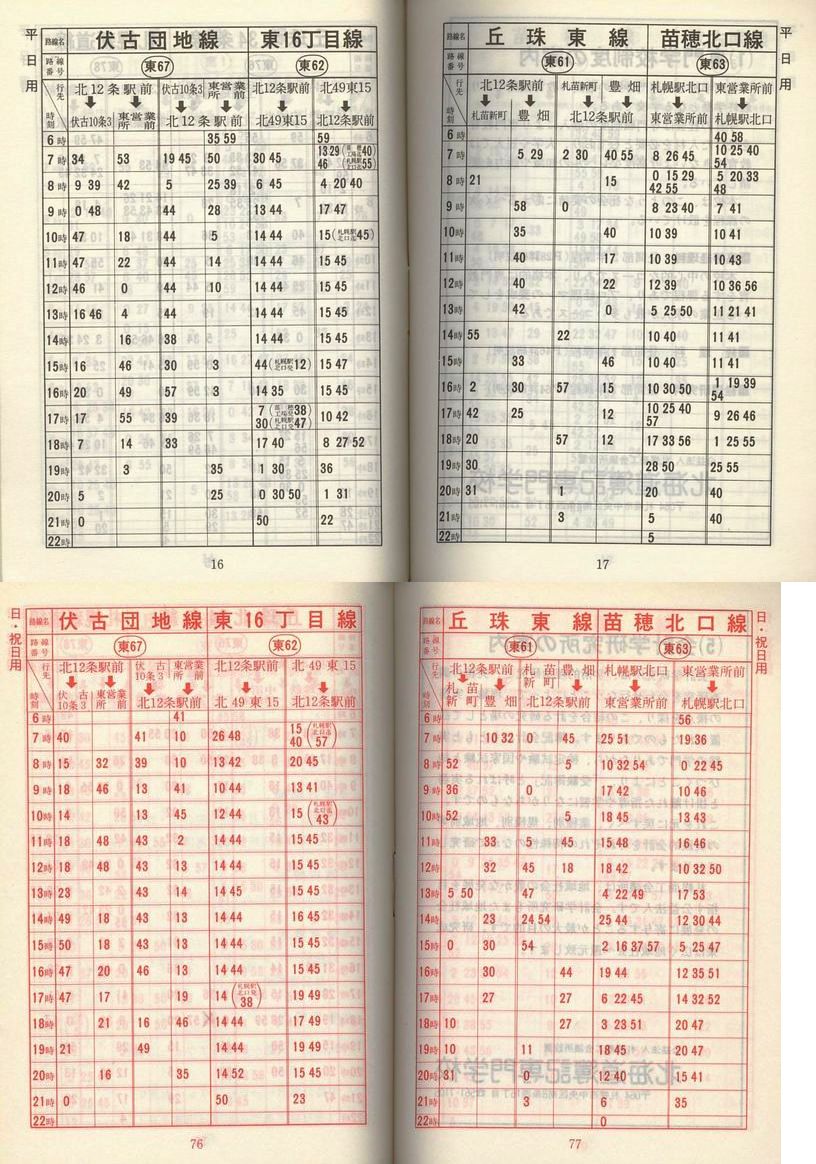 平日用
路線名 伏古団地線 東16丁目線
路線番号 東67 東62
行先 北12条駅前 伏古10条3 東営業所前 北12条駅前 北49東15
時刻 伏古10条3 東営業所前 北12条駅前 北49東15 北12条駅前
6時 35 59 59
7時 34 53 19 45 50 30 45 13 29 (苗穂工場迄40) 46 (札幌駅北口迄55)
8時 9 39 42 5 25 39 6 45 4 20 40
9時 0 48 44 28 13 44 17 47
10時 47 18 44 5 14 44 15 (札幌駅北口迄45)
11時 47 22 44 14 14 44 15 45
12時 46 0 44 10 14 44 15 45
13時 16 46 4 44 14 44 15 45
14時 16 38 14 44 15 45
15時 16 46 30 3 44 (札幌駅北口発12) 15 47
16時 20 49 57 3 14 35 15 45
17時 17 55 39 7 (苗穂工場発38) 30 (札幌駅北口発47) 10 42
18時 7 14 33 17 40 8 27 52
19時 3 35 1 30 36
20時 5 25 0 30 50 1 31
21時 0 50 22
22時
16
平日用
路線名 丘珠東線 苗穂北口線
路線番号 東61 東63
行先 北12条駅前 札苗新町 豊畑 札幌駅北口 東営業所前
時刻 札苗新町 豊畑 北12条駅前 東営業所前 札幌駅北口
6時 40 58
7時 5 29 2 30 40 55 8 26 45 10 25 40 54
8時 21 15 0 15 29 42 55 5 20 33 48
9時 58 0 8 23 40 7 41
10時 35 40 10 39 10 41
11時 40 17 10 39 10 43
12時 40 22 12 39 10 36 56
13時 42 0 5 25 50 11 21 41
14時 55 22 10 40 11 41
15時 33 46 10 40 11 41
16時 2 30 57 15 10 30 50 1 19 39 54
17時 42 25 12 10 25 40 57 9 26 46
18時 20 57 12 17 33 56 1 25 55
19時 30 28 50 25 55
20時 31 1 20 40
21時 3 5 40
22時 5
17
日・祝日用
路線名 伏古団地線 東16丁目線
路線番号 東67 東62
行先 北12条駅前 伏古10条3 東営業所前 北12条駅前 北49東15
時刻 伏古10条3 東営業所前 北12条駅前 北49東15 北12条駅前
6時 41
7時 40 41 10 26 48 15 40 (札幌駅北口迄57)
8時 15 32 39 10 13 42 20 45
9時 18 46 13 41 10 44 13 41
10時 14 13 45 12 44 15 (札幌駅北口迄43)
11時 18 48 43 2 14 44 15 45
12時 18 48 43 13 14 44 15 45
13時 23 43 14 14 45 15 45
14時 49 18 43 13 14 44 16 45
15時 50 18 43 13 14 44 15 45
16時 47 20 46 13 14 44 15 45
17時 47 17 19 14 (札幌駅北口発38) 19 49
18時 21 16 46 14 44 17 49
19時 21 49 14 44 19 49
20時 16 35 14 52 15 45
21時 0 50 23
22時
76
日・祝日用
路線名 丘珠東線 苗穂北口線
路線番号 東61 東63
行先 北12条駅前 札苗新町 豊畑 札幌駅北口 東営業所前
時刻 札苗新町 豊畑 北12条駅前 東営業所前 札幌駅北口
6時 56
7時 10 32 0 45 25 51 19 36
8時 52 5 10 32 54 0 22 45
9時 36 0 17 42 10 46
10時 52 5 18 45 13 43
11時 33 5 45 15 48 16 46
12時 32 45 18 18 42 10 32 50
13時 5 50 47 4 22 49 17 53
14時 23 24 54 25 44 12 30 44
15時 0 30 54 2 16 37 57 5 25 47
16時 30 44 19 44 12 35 51
17時 27 27 6 22 45 14 32 52
18時 10 27 3 23 51 20 47
19時 10 11 18 45 20 47
20時 31 0 12 40 15 41
21時 3 6 35
22時 0
77